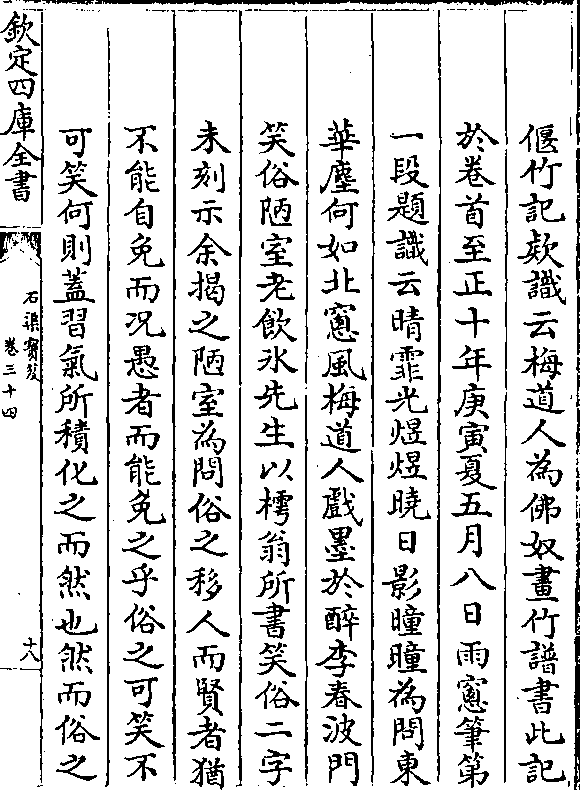 偃竹記款識云梅道人為佛奴畫竹譜書此記
於卷首至正十年庚寅夏五月八日雨窻筆第
一段題識云晴霏光煜煜曉日影曈曈為問東
華塵何如北窻風梅道人戲墨於醉李春波門
笑俗陋室老飲冰先生以樗翁所書笑俗二字
未刻示余揭之陋室為問俗之移人而賢者猶
不能自免而况愚者而能免之乎俗之可笑不
可笑何則蓋習氣所積化之而然也然而俗之
欽定四庫全書
石渠寳笈
卷三十四
十八